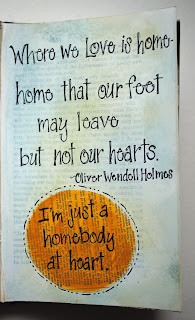 Where we Love is home-
home that our feet
may leave
but not our hearts.
-Oliver Wendell Holmes
I'm just a
homebody
at heart.